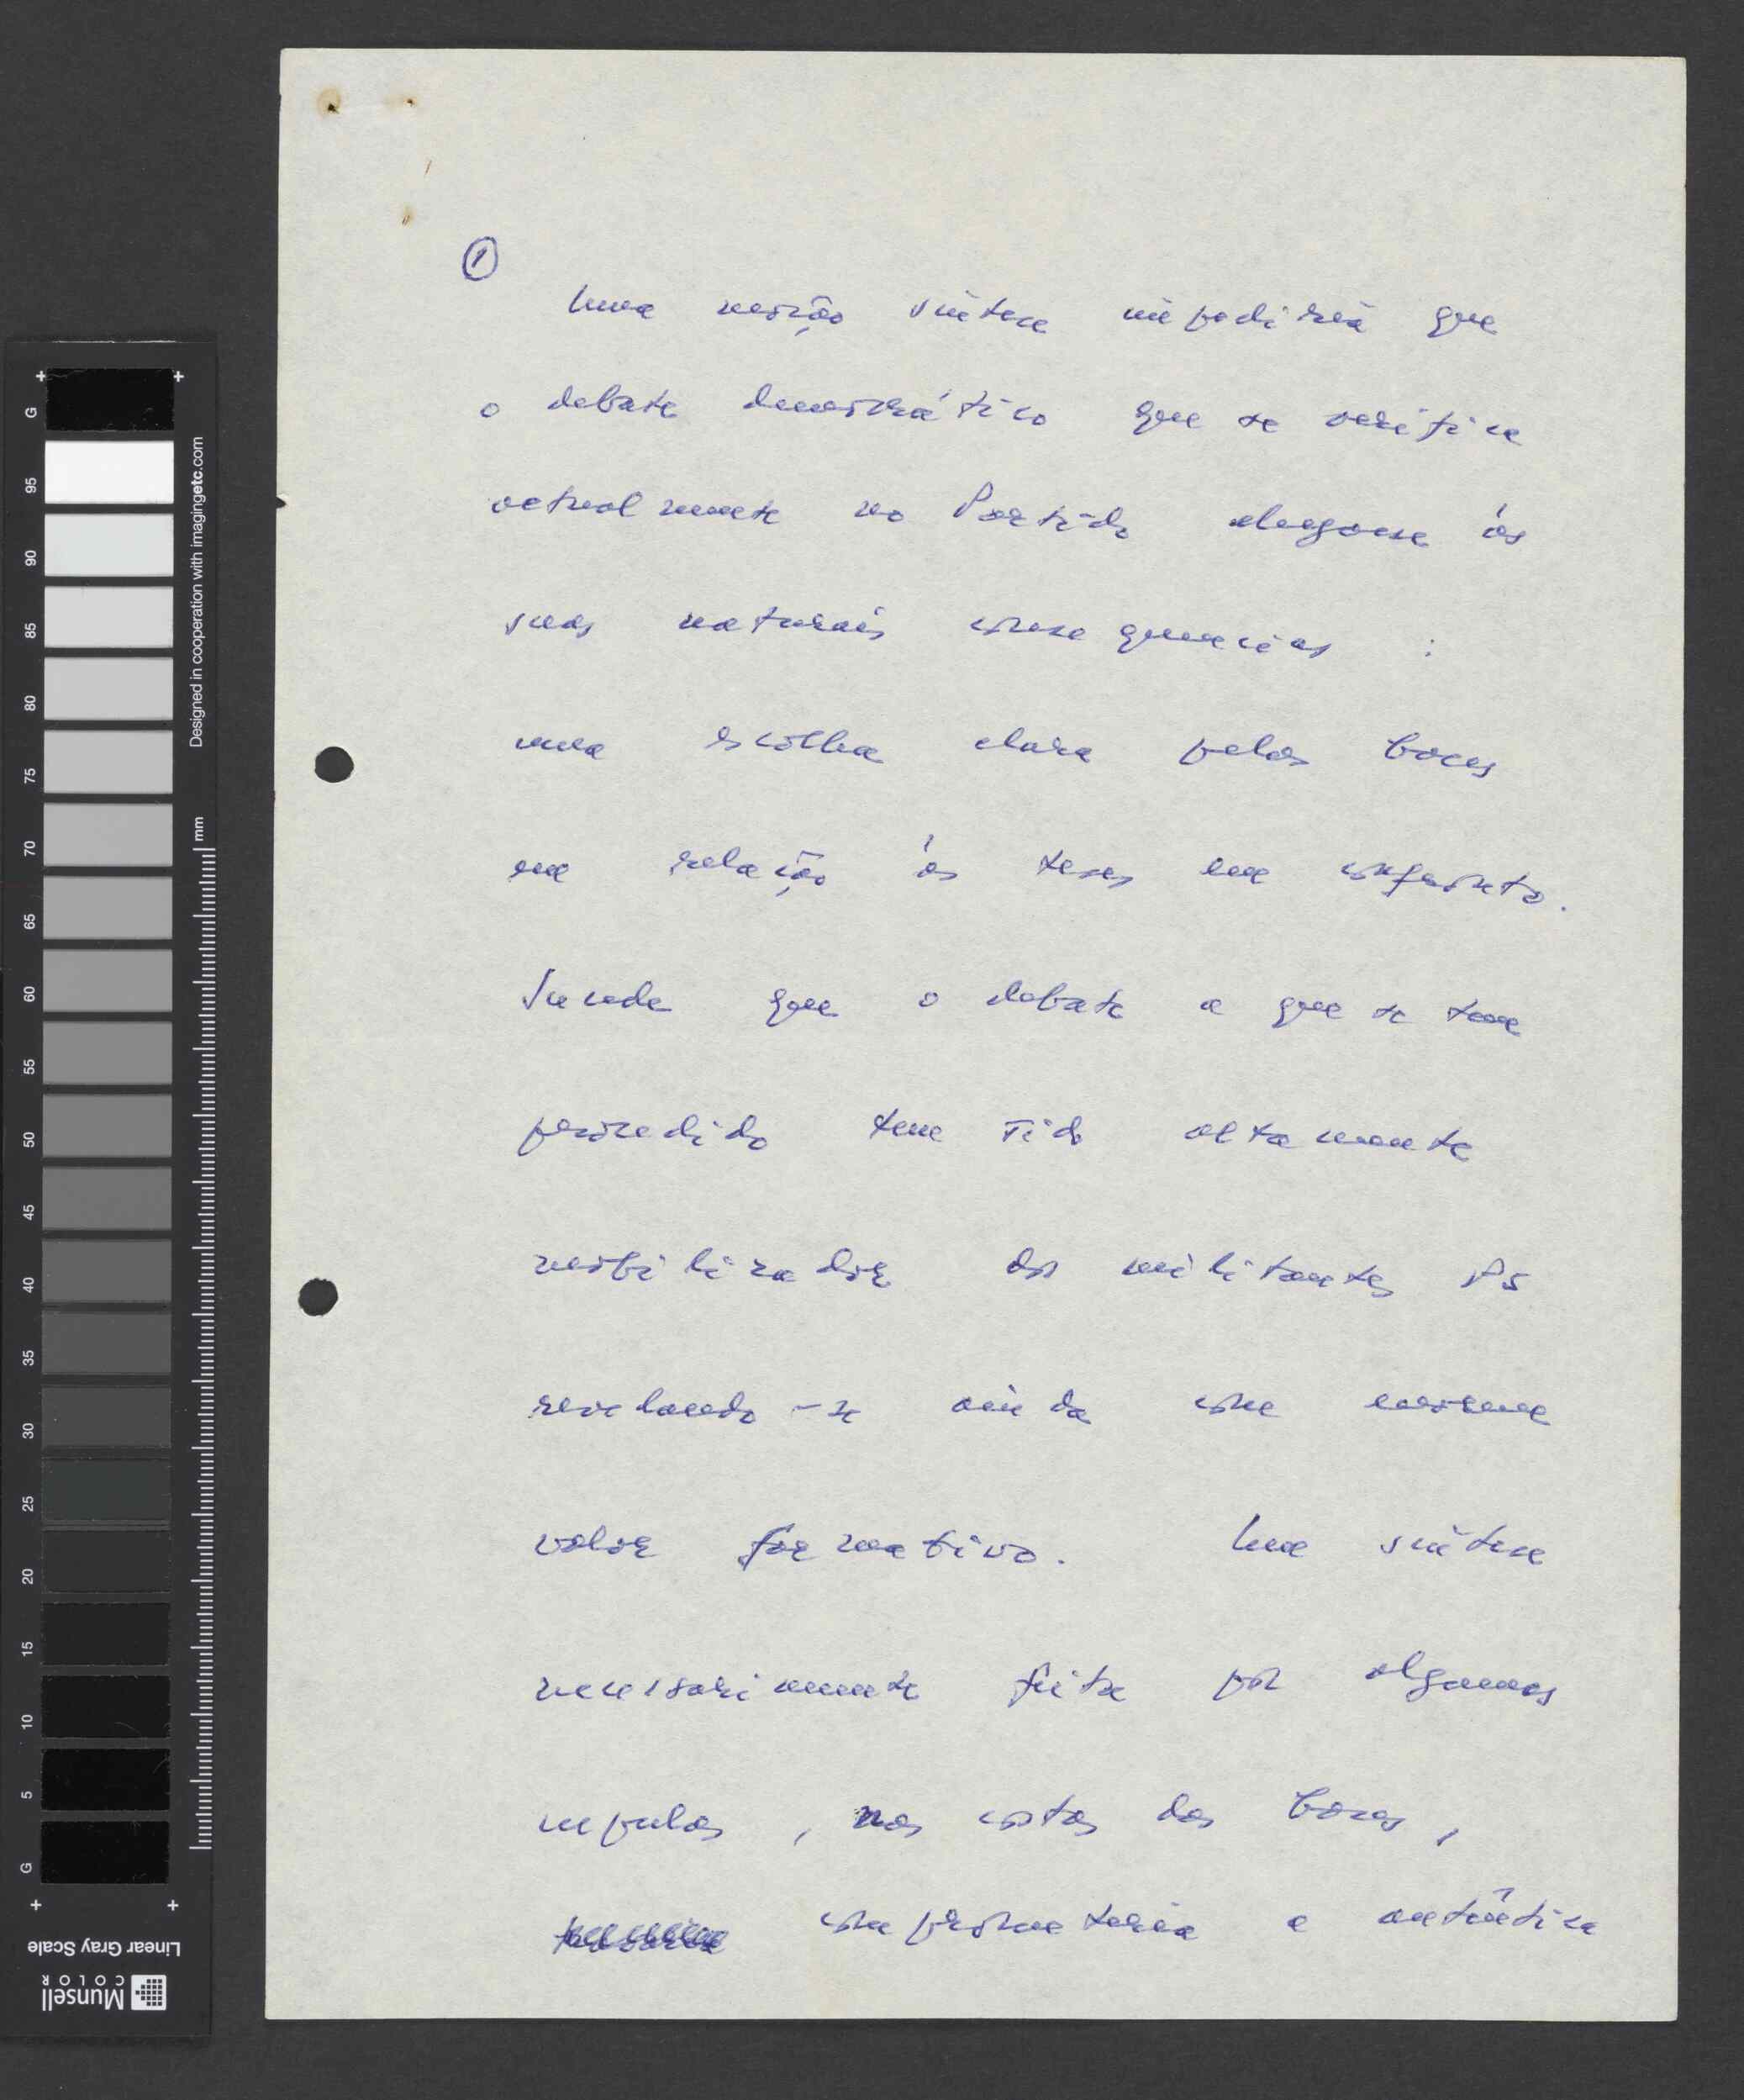 ①
Uma moção síntese impediria que
o debate democrático que se verifica
actualmente no Partido chegasse às
suas naturais consequencias :
uma escolha clara pelas bases
em relação às teses em confronto.
Sucede que o debate a que se tem
procedido tem sido altamente
mobilizador dos militantes PS
revelando-se ainda com enorme
valor formativo. Uma síntese
necessariamente feita por algumas
cupulas, nas costas das bases,
comprometeria a autêntica
G
95
90
85
80
75
70
65
60
55
50
45
40
35
30
25
20
15
10
5
G
mm
Designed in cooperation with imagingetc.com
Linear Gray Scale
Munsell
COLOR